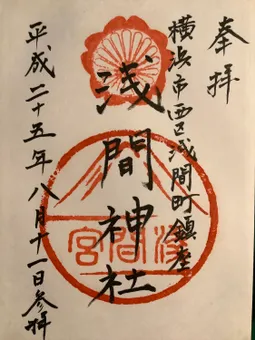 奉拝
横浜市西区浅間町鎮座
浅間神社
平成二十五年八月十一日参拝
浅間宮